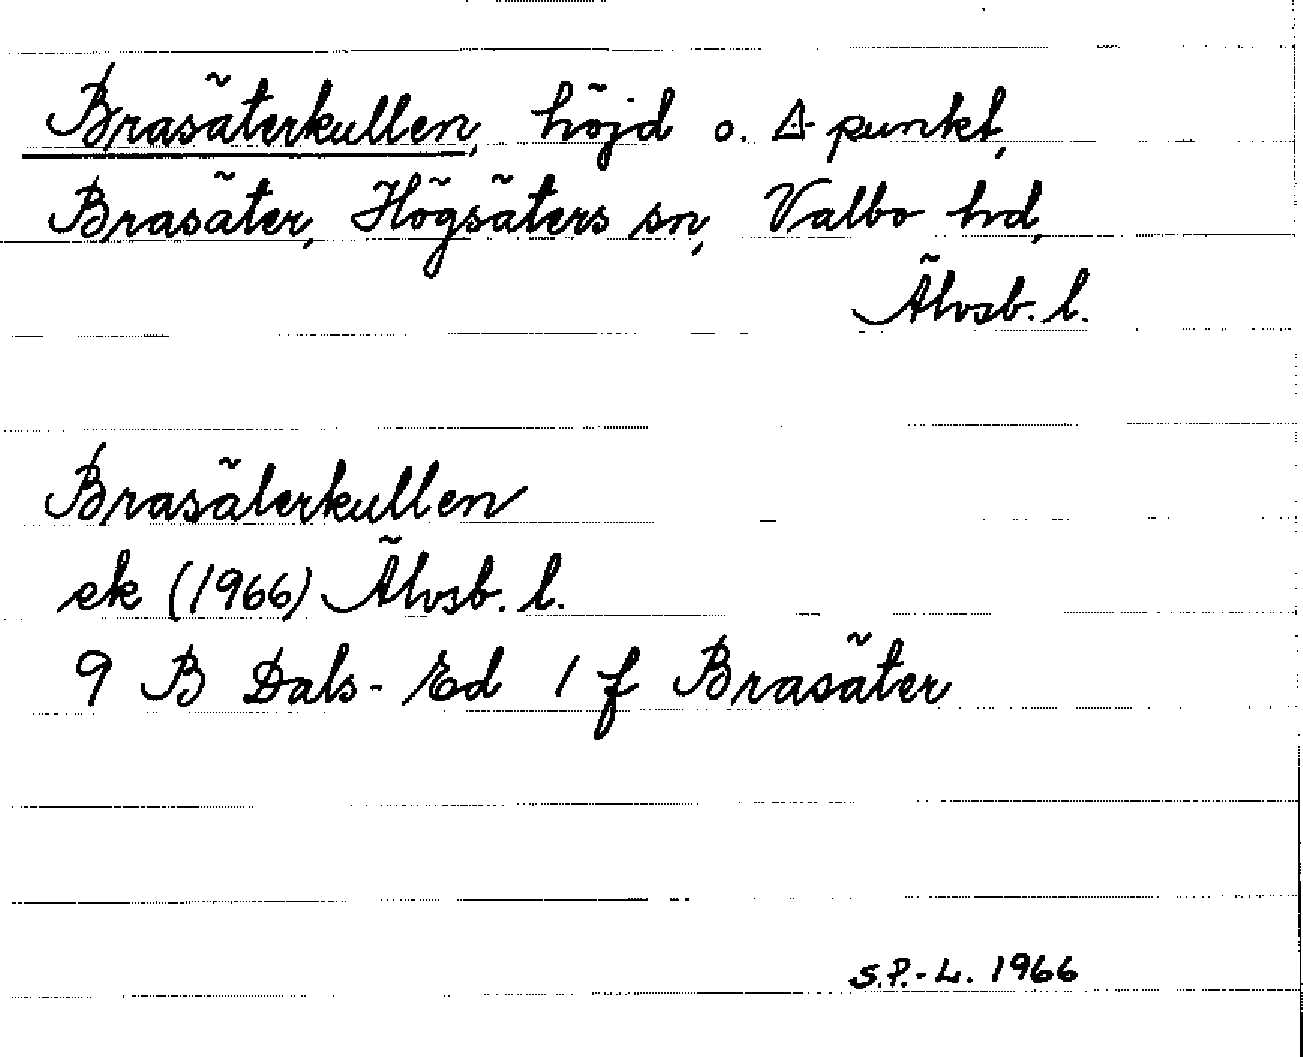 Brasäterkullen, höjd o. ∆ punkt,
Brasäter, Högsäters sn, Valbo hd,
Älvsb. l.
Brasäterkullen
ek (1966) Älvsb. l.
9 B Dals-Ed 1 f Brasäter
S.P.-L. 1966